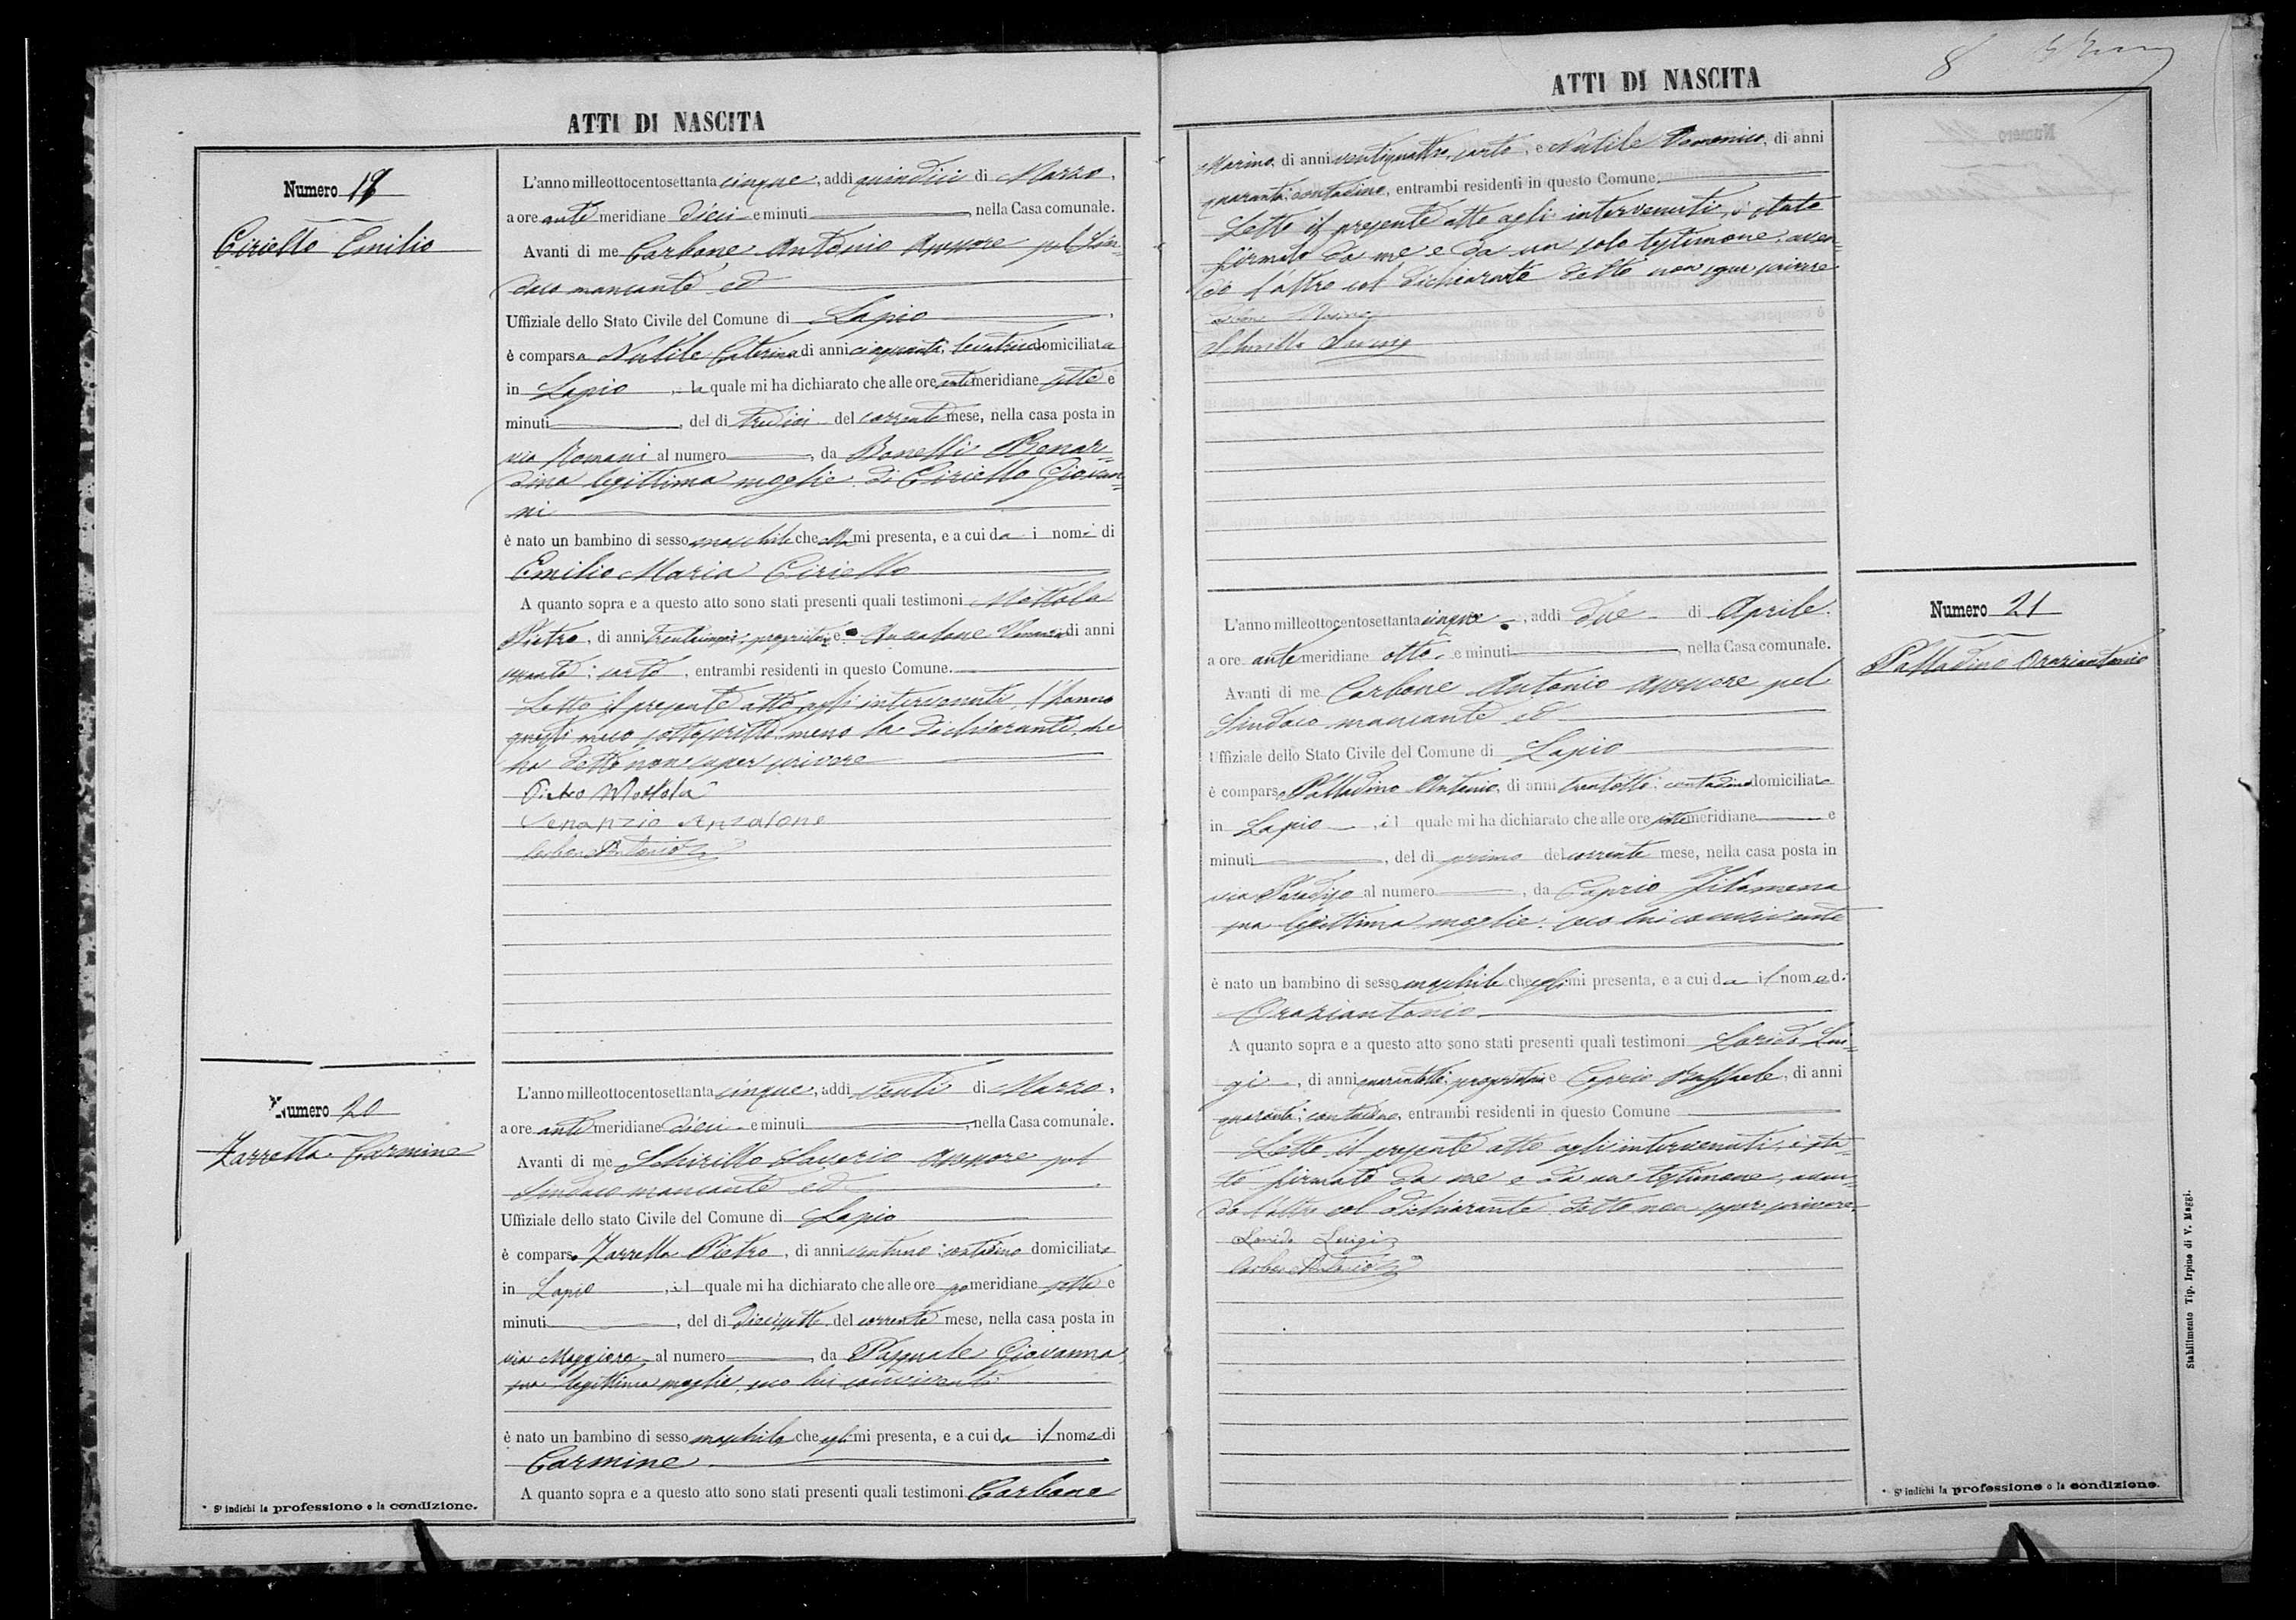 ATTI DI NASCITA
Numero 19
Ciriello Emilio
L'anno milleottocentosettanta cinque, addì quindici di Marzo,
a ore ante meridiane dieci e minuti, nella Casa comunale.
Avanti di me Carbone Antonio Assessore pel Sin=
daco mancante ed
Uffiziale dello Stato Civile del Comune di Lapio
è comparsa Nutile Caterina di anni cinquanta, levatrice domiciliata
in Lapio, la quale mi ha dichiarato che alle ore ante meridiane sette e
minuti, del dì tredici del corrente mese, nella casa posta in
via Romani al numero, da Bonelli Benar=
dina legittima moglie di Ciriello Giovan=
ni
è nato un bambino di sesso maschile che ella mi presenta, e a cui da i nomi di
Emilio Maria Ciriello
A quanto sopra e a questo atto sono stati presenti quali testimoni Mottola
Pietro, di anni trentacinque, proprietario e Anzalone Venanzio di anni
sarto, entrambi residenti in questo Comune.
Letto il presente atto agli intervenuti, l'hanno
questi meco sottoscritto meno la dichiarante, che
ha detto non saper scrivere
Pietro Mottola
Venanzio Anzalone
Carbone Antonio
Numero 20
Zarrella Carmine
L'anno milleottocentosettanta cinque, addì venti di Marzo,
a ore ante meridiane dieci e minuti, nella Casa comunale.
Avanti di me Schirillo Saverio Assessore pel
Sindaco mancante ed
Uffiziale dello stato Civile del Comune di Lapio
è comparso Zarrella Pietro, di anni ventuno: contadino domiciliato
in Lapio, il quale mi ha dichiarato che alle ore pomeridiane sette e
minuti, del dì diecisette del corrente mese, nella casa posta in
via Maggiore al numero, da Pasquale Giovanna,
sua legittima moglie, seco lui convivente
è nato un bambino di sesso maschile che egli mi presenta, e a cui da il nome di
Carmine
A quanto sopra e a questo atto sono stati presenti quali testimoni Carbone
* S' indichi la professione o la condizione.
8
ATTI DI NASCITA
Marino, di anni ventiquattro, sarto, e Nutile Domenico, di anni
quaranta: contadino, entrambi residenti in questo Comune.
Letto il presente atto agli intervenuti, è stato
firmato da me e da un solo testimone, aven=
do l'altro col dichiarante detto non saper scrivere
Carbone Marino
Schirillo Saverio
Numero 21
Palladino Oraziantonio
L'anno milleottocentosettanta cinque, addì due di Aprile,
a ore ante meridiane otto e minuti, nella Casa comunale.
Avanti di me Carbone Antonio Assessore pel
Sindaco mancante ed
Uffiziale dello Stato Civile del Comune di Lapio
è comparso Palladino Antonio, di anni trentotto: contadino domiciliato
in Lapio, il quale mi ha dichiarato che alle ore sette meridiane e
minuti, del dì primo del corrente mese, nella casa posta in
via Paradiso al numero, da Caprio Filomena
sua legittima moglie: seco lui convivente
è nato un bambino di sesso maschile che egli mi presenta, e a cui da il nome di
Oraziantonio
A quanto sopra e a questo atto sono stati presenti quali testimoni Lui=
gi, di anni quarantotto: proprietario e Caprio Raffaele, di anni
quaranta: contadino, entrambi residenti in questo Comune
Letto il presente atto agli intervenuti, è sta=
to firmato da me e da un testimone, aven=
do l'altro col dichiarante detto non saper scrivere
Luigi
Carbone Antonio
* S' indichi la professione o la condizione.
Stabilimento Tip. Irpino di V. Maggi.